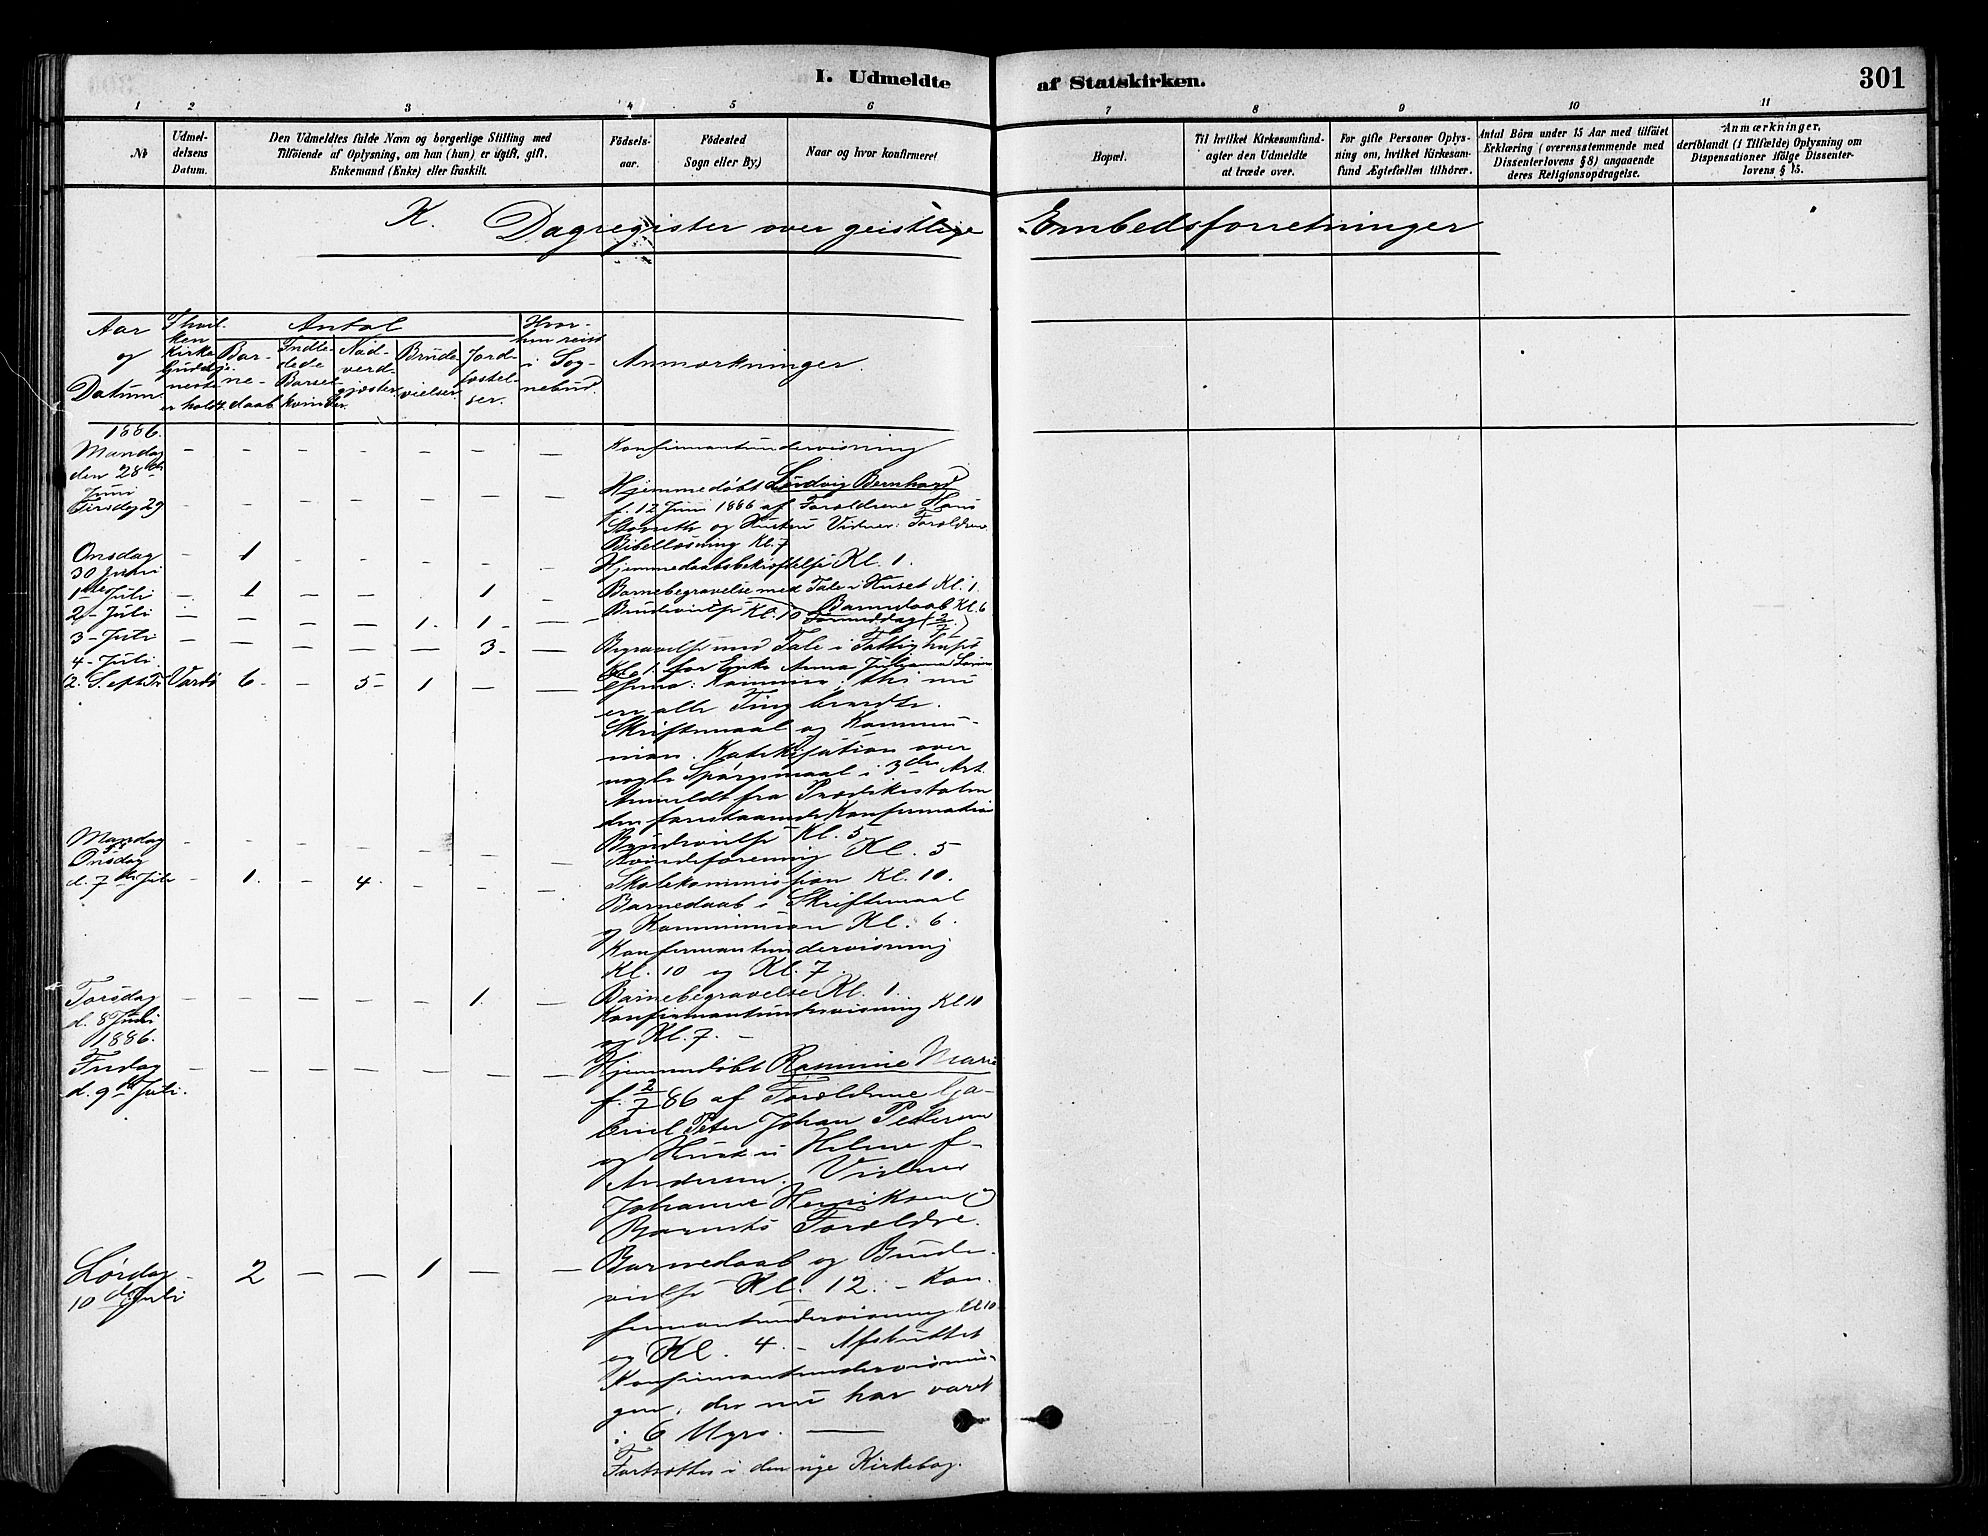 I. Udmeldte af Statskirken. 301
1 2 3 4 5 6 7 8 9 10 11
№
Udmeldelsens Datum.
Den Udmeldtes fulde Navn og borgerlige Stilling med
Tilföiende af Oplysning, om han (hun) er ugift, gift,
Enkemand (Enke) eller fraskilt.
Födselsaar.
Födested
Sogn eller By)
Naar og hvor konfirmeret
Bopæl.
Til hvilket Kirkesamfund
agter den Udmeldte
at træde over.
For gifte Personer Oplysning
om, hvilket Kirkesamfund
Ægtefællen tilhörer.
Antal Börn under 15 Aar med tilföiet
Erklæring (overensstemmende med
Dissenterlovens § 8) angaaende
deres Religionsopdragelse.
Anmærkninger,
deriblandt (i Tilfælde) Oplysning om
Dispensationer ifölge Dissenterlovens
§ 15.
K. Dagregister over geistlige Embedsforretninger
Aar og Datum
I hvilken Kirke Gudstjeneste er holdt.
Antal
Barnedaab
Indledede Barselkvinder.
Nadverdgjæster
Brudevielser
Jordfæstelser.
Hvorhen reist i Sognebud.
Anmærkninger.
1886.
Mandag - - - - - - - Konfirmantundervisning
den 28de
Juni
Tirsdag 29 - - - - - - - Hjemmedøbt Ludvig Bernhard
f. 12 Juni 1886 af Forældrene Hans
og Hustru Vidner: Forældrene
Bibellæsning Kl. 7
Onsdag - 1 - - - - - Hjemmedaabsbekræftelse Kl. 1.
30 Juni
1ste Juli - 1 - - 1 - Barnebegravelse med Tale i Huset Kl. 1
Barnedaab Kl. 6
2 - Juli - - - - 1. 1 - Brudevielse Kl. 10 Formiddag (2/7)
3 - Juli - - - - - 3 - Begravelse med Tale i Fattighuset
Kl. 1 for Enke Anna Juliana
4 - Juli
2. S. eft. Tr. Vardø 6 - 5 - 1 - -
er alle Ting beredte.
Skriftemaal og Kommunion.
Katekisation over
nogle Spørgsmaal i 3die Art.
Anmeldt fra Prædikestolen
den forestaaende Konfirmation
Brudevielse Kl. 5
Mandag - - - - - - - Kvindeforening Kl. 5
Onsdag
d. 7de Juli - 1. - 4. - - - Skolekommission Kl. 10.
Barnedaab i Skriftemaal
og Kommunion Kl. 6.
Konfirmantundervisning
Kl. 10 og Kl. 7.
Torsdag - - - - - 1. - Barnebegravelse Kl. 1.
d. 8 Juli Konfirmantundervisning Kl 10
1886. og Kl. 7. -
Fredag - - - - - - - Hjemmedøbt Rasmine Marie
d. 9de Juli. f. 2/7 86 af Forældrene Gabriel
Peter Johan Pedersen
og Hustru Helene f.
Andersen. Vidner
Johanne Henriksen og
Barnets Forældre.
Lørdag - 2 - - 1 - - Barnedaab og Brudevielse
10de Juli Kl. 12. - Konfirmantundervisning
Kl 10
og Kl. 4. - Afsluttet
Konfirmantundervisningen,
der nu har varet
i 6 Uger. -
Fortsættes i den nye Kirkebog.